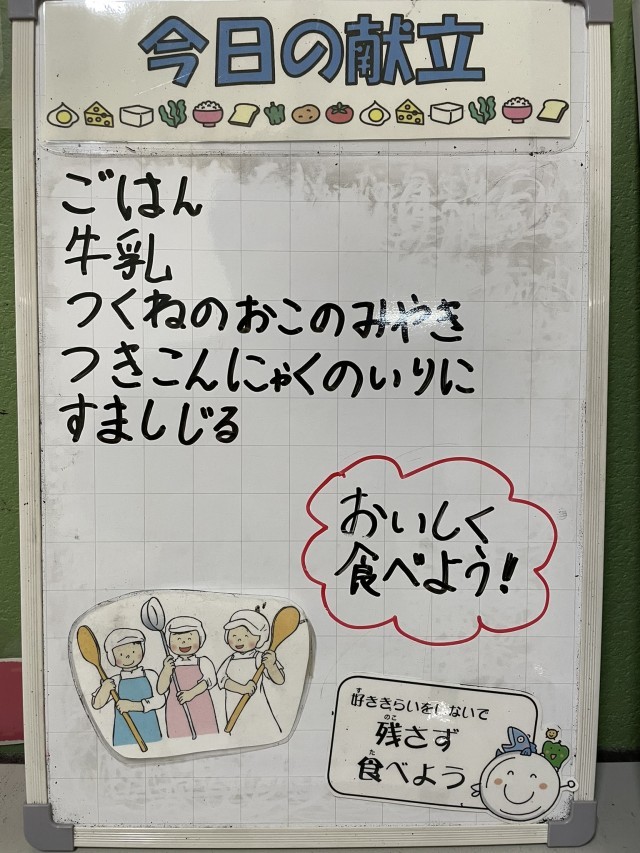 今日の献立
ごはん
牛乳
つくねのおこのみやき
つきこんにゃくのいりに
すましじる
おいしく
食べよう!
好ききらいをしないで
残さず
食べよう